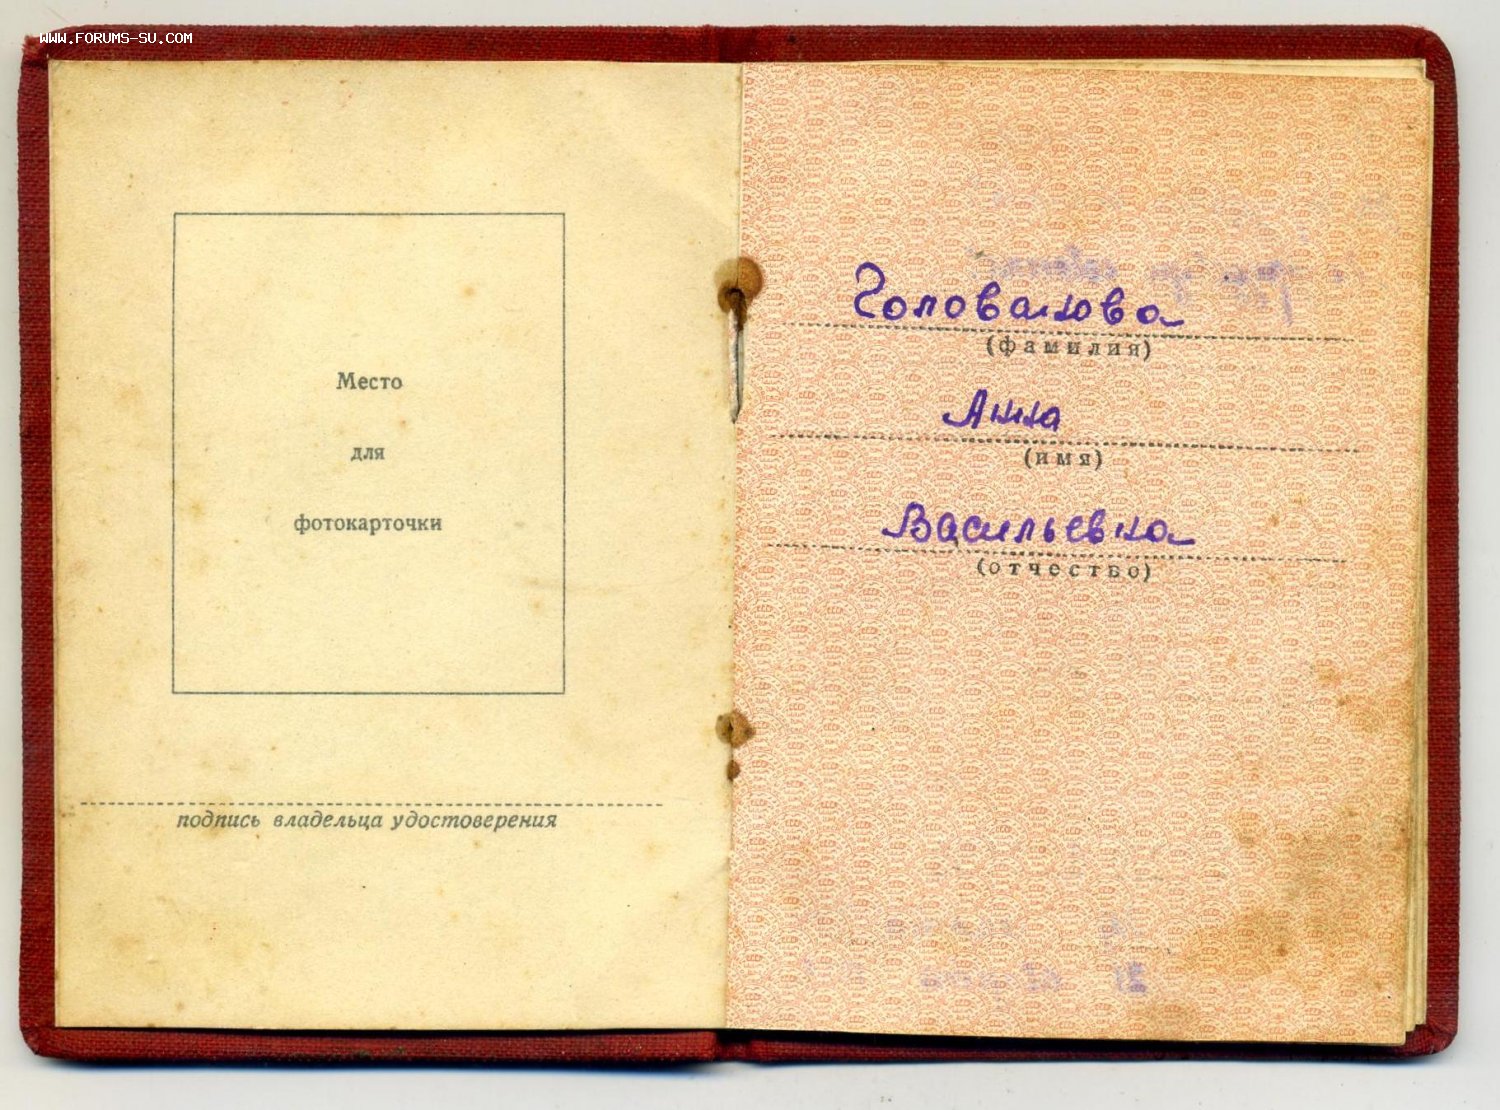 WWW.FORUMS-SU.COM
Место
для
фотокарточки
подпись владельца удостоверения
Голованова
(фамилия)
Анна
(имя)
Васильевна
(отчество)